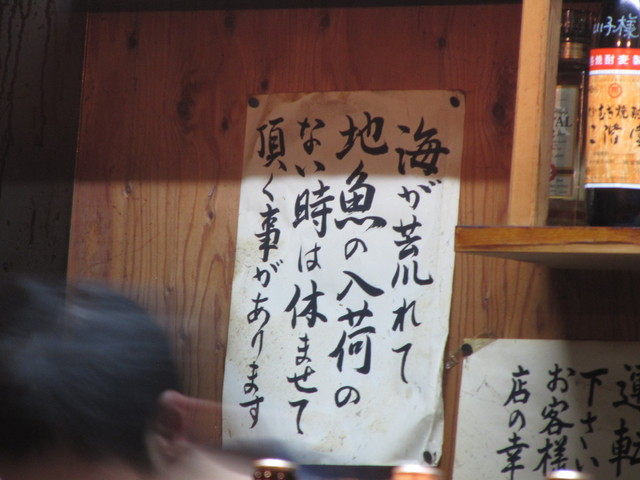 海が荒れて
地魚の入荷の
ない時は休ませて
頂く事があります
運転
下さい
お客様
店の幸
二階堂